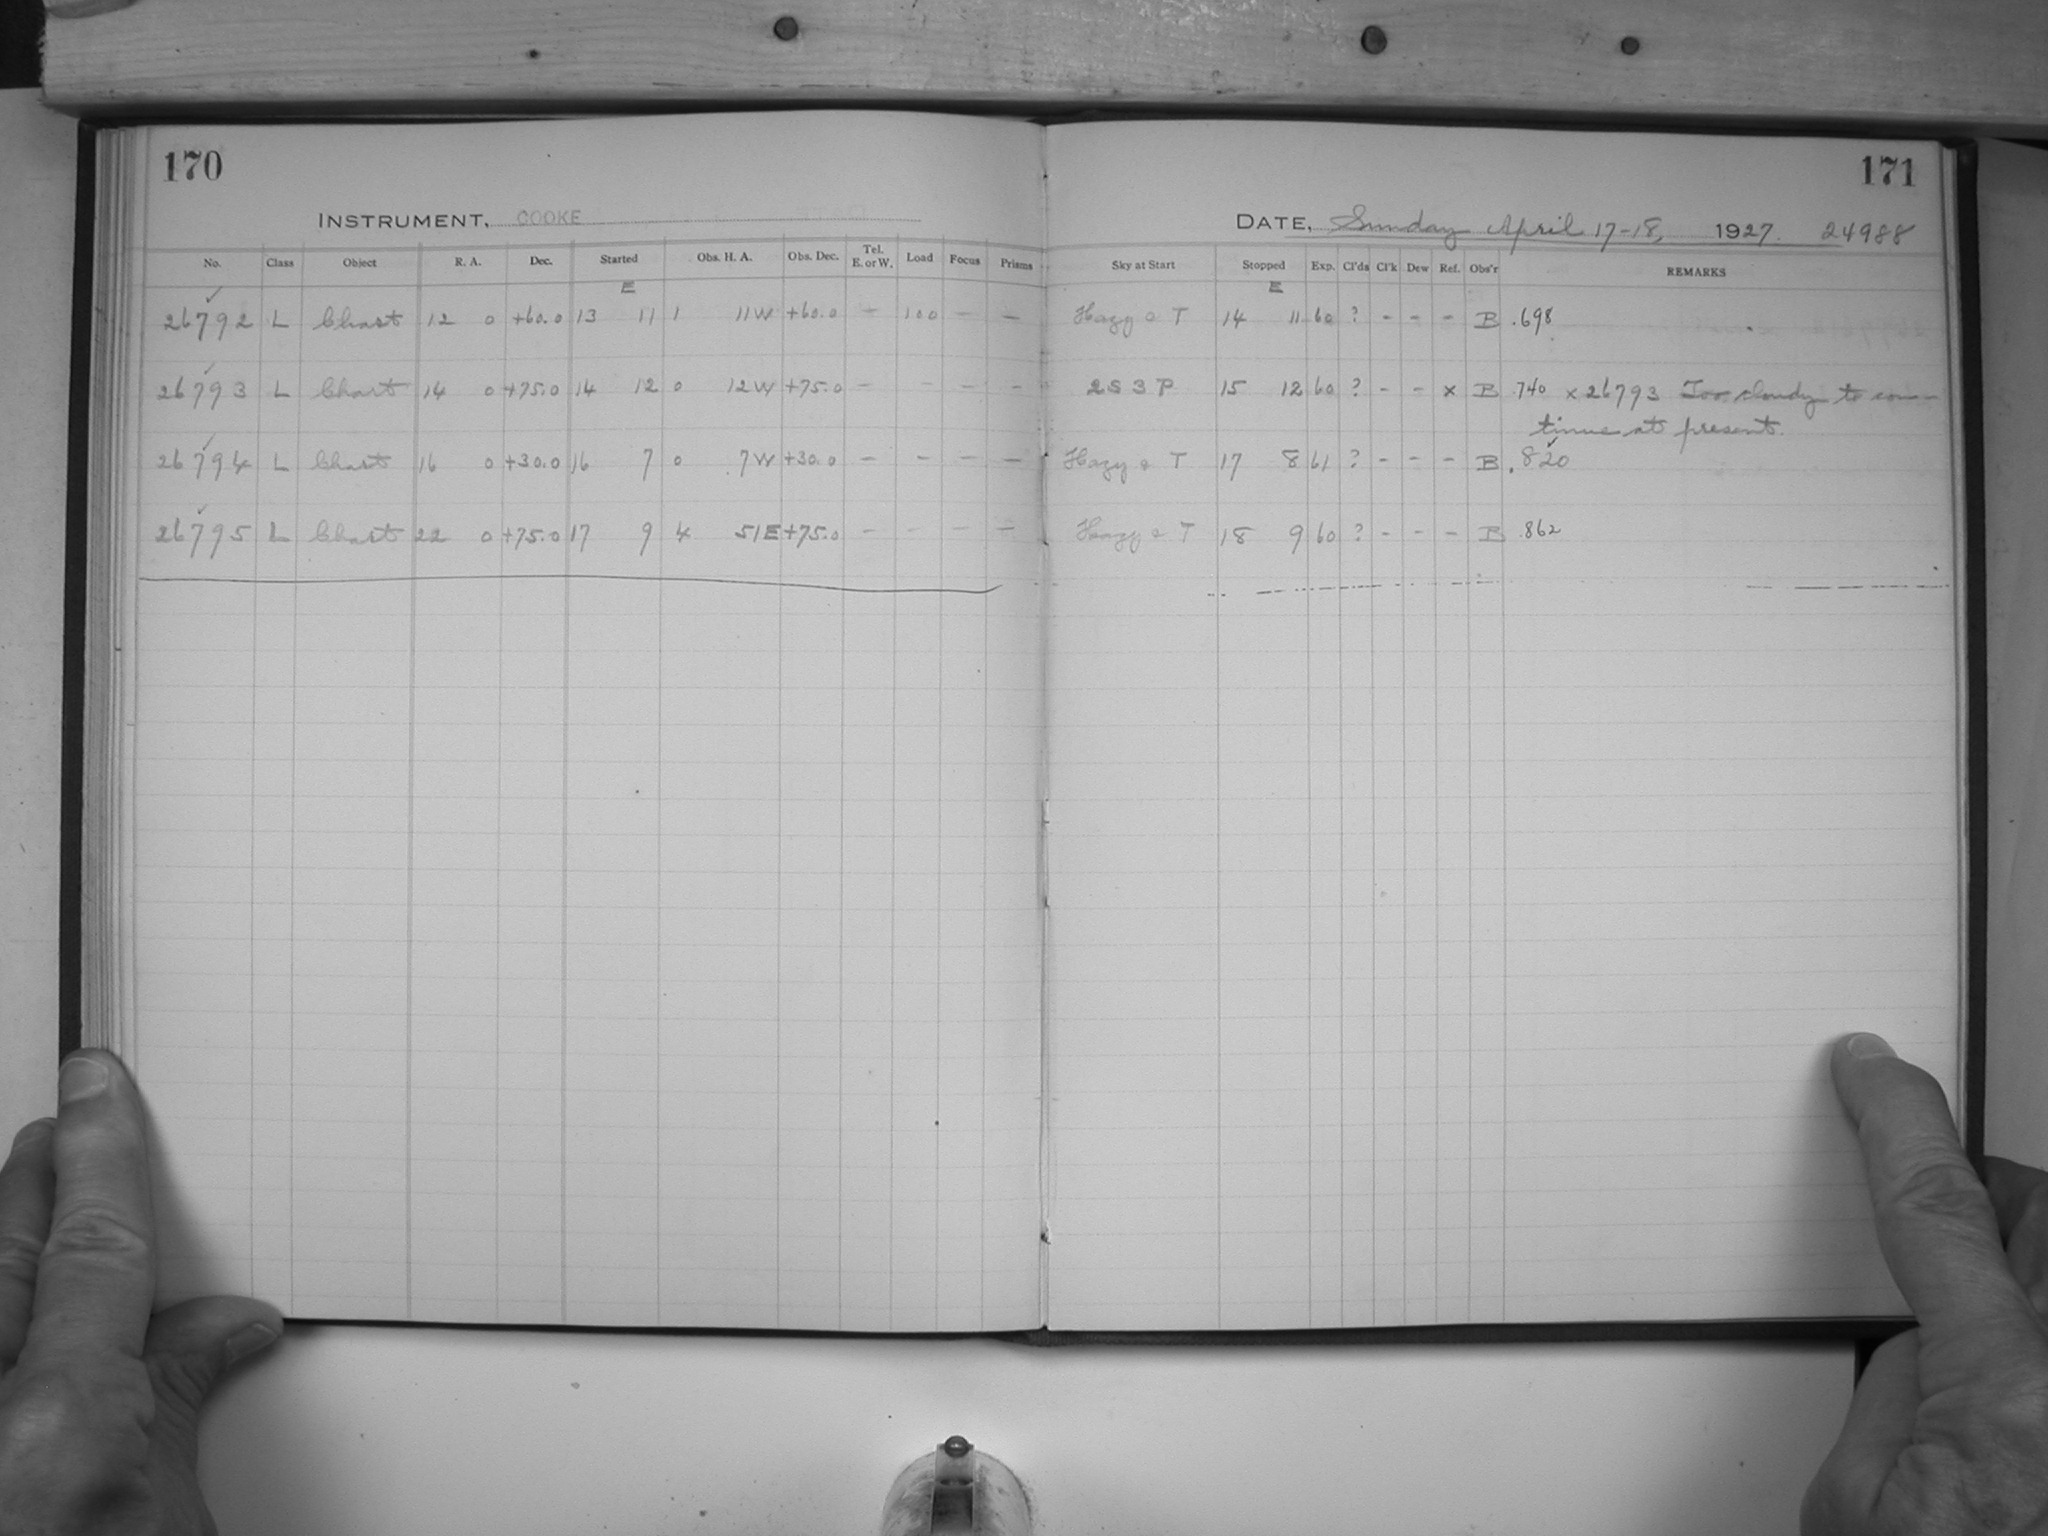 170
INSTRUMENT, COOKE
No. Class Object R. A. Dec. Started Obs. H. A. Obs. Dec. Tel. E. or W. Load Focus Prisms
E
26792 L Chart 12 0 +60.0 13 11 1 11W +60.0 - 100 - -
26793 L Chart 14 0 +75.0 14 12 0 12W +75.0 - - - -
26794 L Chart 16 0 +30.0 16 7 0 7W +30.0 - - - -
26795 L Chart 22 0 +75.0 17 9 4 51E +75.0 - - - -
171
DATE, Sunday April 17-18, 1927. 24988
Sky at Start Stopped Exp. Cl'ds Cl'k Dew Ref. Obs'r REMARKS
E
Hazy & T 14 11 60 ? - - - B .698
2S 3P 15 12 60 ? - - x B .740 x 26793 Too cloudy to con-
tinue at present.
Hazy & T 17 8 61 ? - - - B .820
Hazy & T 18 9 60 ? - - - B .862